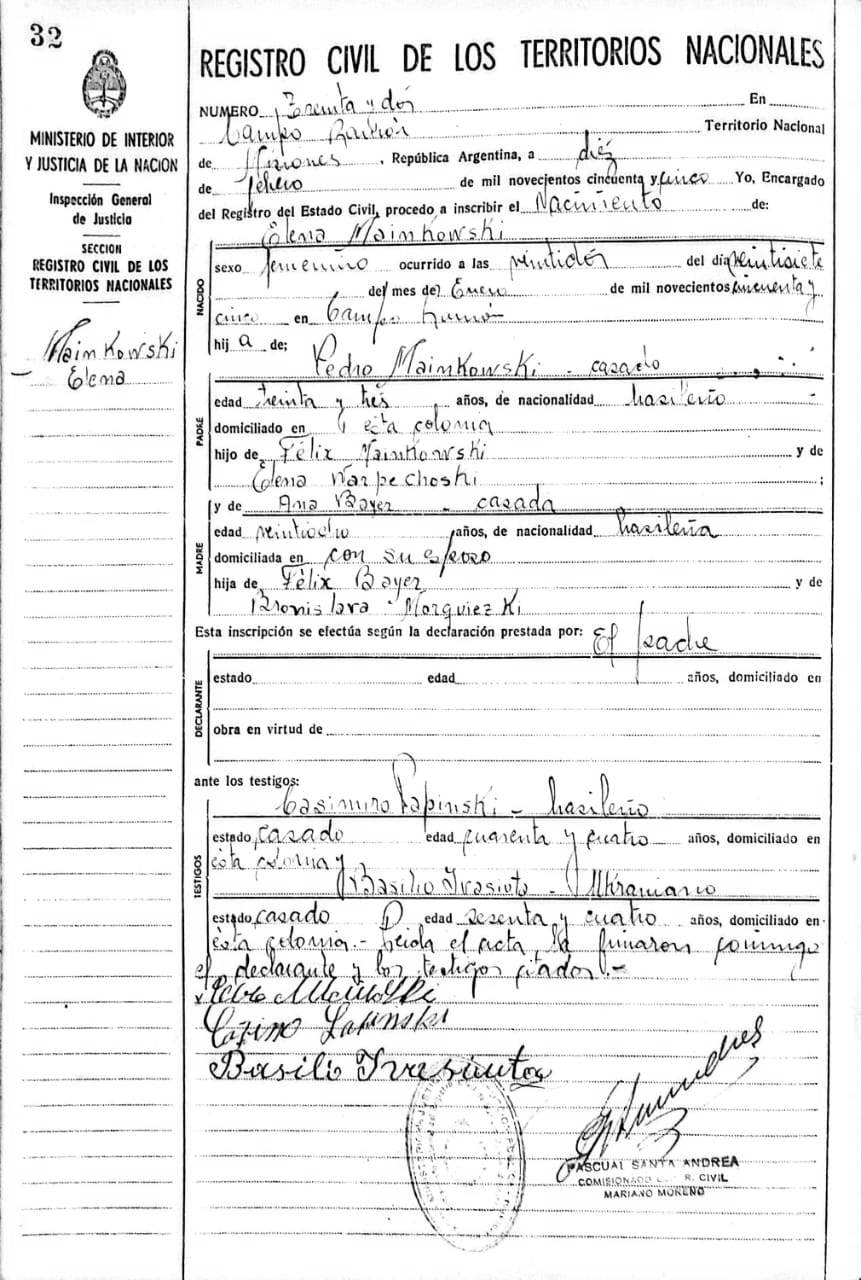 32
MINISTERIO DE INTERIOR
Y JUSTICIA DE LA NACION
Inspección General
de Justicia
SECCION
REGISTRO CIVIL DE LOS
TERRITORIOS NACIONALES
Mainkowski
Elena
REGISTRO CIVIL DE LOS TERRITORIOS NACIONALES
NUMERO Treinta y dós En
Campo Ramón Territorio Nacional
de Misiones, República Argentina, a diéz
de febrero de mil novecientos cincuenta y cinco Yo, Encargado
del Registro del Estado Civil, procedo a inscribir el Nacimiento de:
Elena Mainkowski
NACIDO
sexo femenino ocurrido a las veintidós del día veintisiete
del mes de Enero de mil novecientos cincuenta y
cinco en Campo Ramón
hij a de;
Pedro Mainkowski - casado
PADRE
edad treinta y trés años, de nacionalidad brasileño
domiciliado en esta colonia
hijo de Félix Mainkowski y de
Elena Warpechoski ;
MADRE
y de Ana Bayer - casada
edad veintiocho años, de nacionalidad brasileña
domiciliada en con su esposo
hija de Félix Bayer y de
Bronislava Morquiezki
Esta inscripción se efectúa según la declaración prestada por: El padre
DECLARANTE
estado edad años, domiciliado en
obra en virtud de
ante los testigos:
TESTIGOS
Casimiro Lapinski - brasileño
estado casado edad cuarenta y cuatro años, domiciliado en
ésta colonia y
Basilio - Ukraniano
estado casado edad sesenta y cuatro años, domiciliado en
ésta colonia.- Leida el acta, la firmaron conmigo
el declarante y los testigos citados.-
Lapinski
Basilio
PASCUAL SANTA ANDREA
COMISIONADO R. CIVIL
MARIANO MORENO